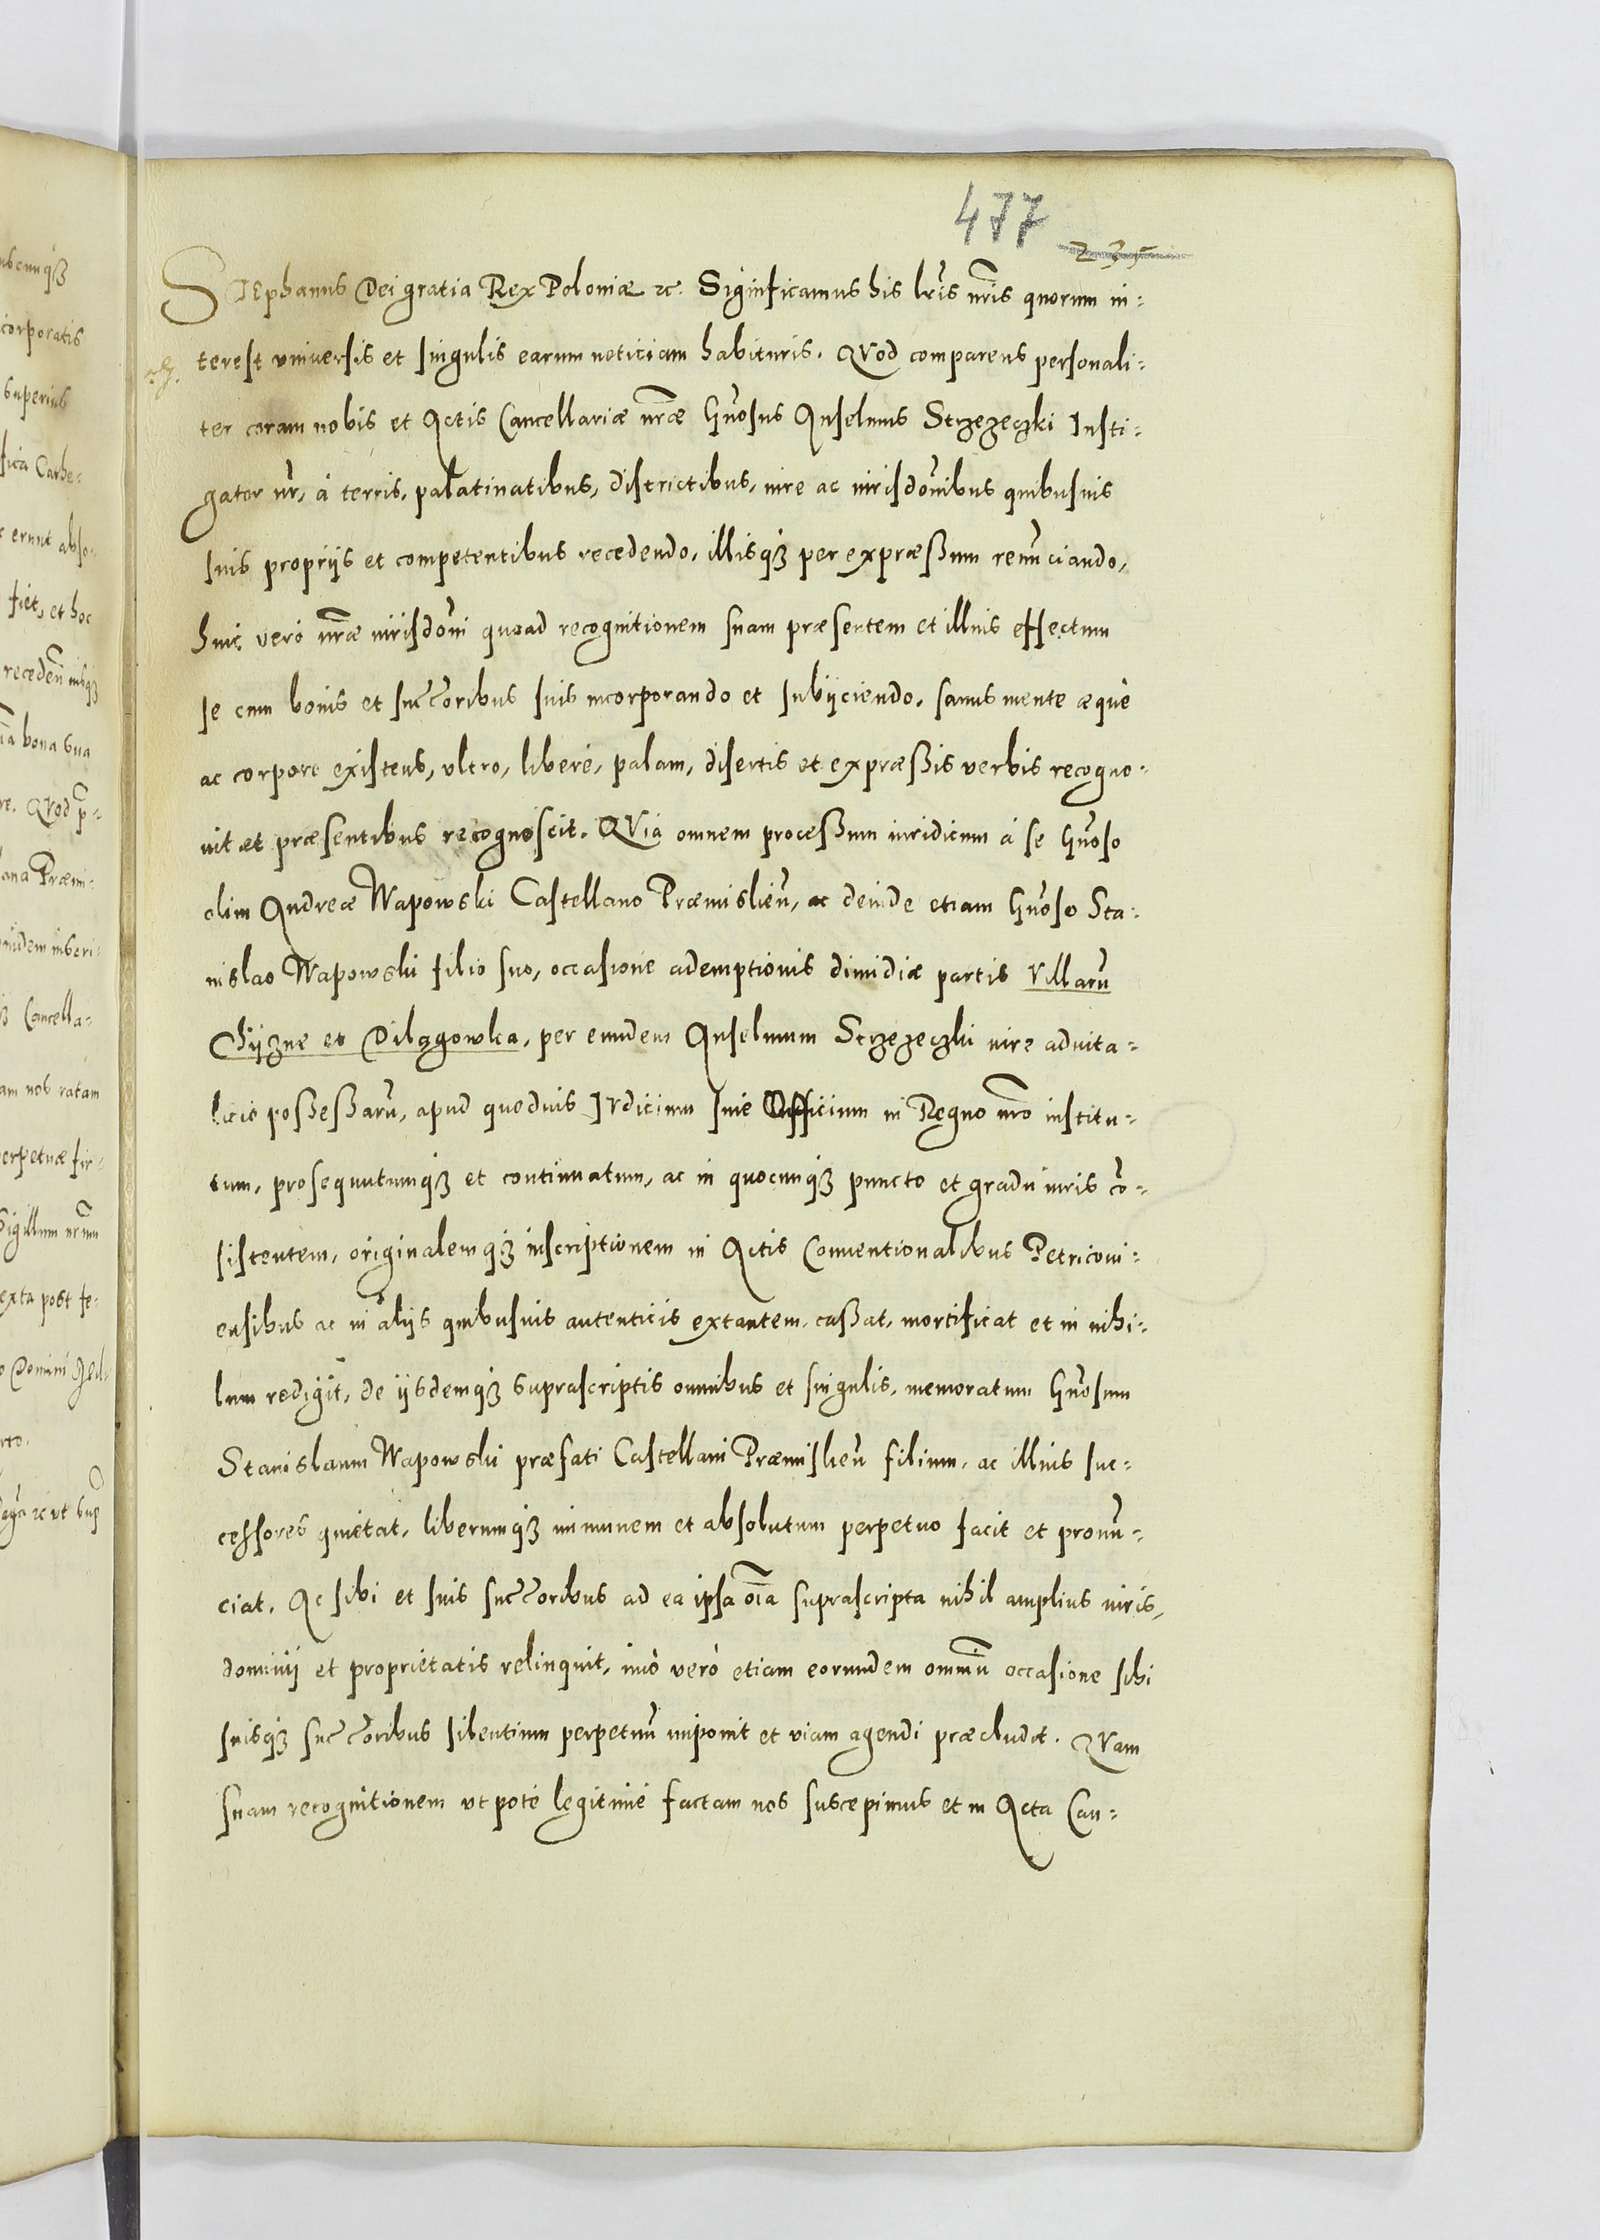 477
235
STEphanus Dei gratia Rex Poloniæ &c. Significamus his lris nris quorum in-
terest vniuersis et singulis earum noticiam habituris. QVod comparens personali-
ter coram nobis et Actis Cancellariæ nræ Gnosus Anselmus Strzezeczki Insti-
gator nr, á terris, palatinatibus, districtibus, iure ac iurisdonibus quibusuis
suis proprijs et competentibus recedendo, illisq3 per expræßum renunciando,
huic veró nræ iurisdoni quoad recognitionem suam præsentem et illius effectum
se cum bonis et succoribus suis incorporando et subijciendo, sanus mente æque
ac corpore existens, vltro, liberé, palam, disertis et expræßis verbis recogno-
uit et præsentibus recognoscit. QVia omnem proceßum iuridicum á se Gnoso
olim Andreæ Wapowski Castellano Præmislien, ac deinde etiam Gnoso Sta-
nislao Wapowski filio suo, occasione ademptionis dimidiæ partis Villaru
Chÿzne et Dilągowka, per eundem Anselmum Strzezeczki iure aduita-
licio poßeßaru, apud quoduis IVdicium siue Officium in Regno nro institu-
tum, prosequutumq3 et continuatum, ac in quocunq3 puncto et gradu iuris co-
sistentem, originalemq3 inscriptionem in Actis Conuentionalibus Petricoui-
ensibus ac in alijs quibusuis autenticis extantem, caßat, mortificat et in nihi-
lum redigit, de ijsdemq3 suprascriptis omnibus et singulis, memoratum Gnosum
Stanislaum Wapowski præfati Castellani Præmislien filium, ac illius suc-
cessores quietat, liberumq3 immunem et absolutum perpetuo facit et pronu-
ciat. Ac sibi et suis succoribus ad ea ipsa oia suprascripta nihil amplius iuris,
dominij et proprietatis relinquit, imò verò etiam eorundem omniu occasione sibi
suisq3 succoribus silentium perpetuu imponit et viam agendi præcludit. QVam
suam recognitionem vt poté legitimé factam nos suscepimus et in Acta Can-